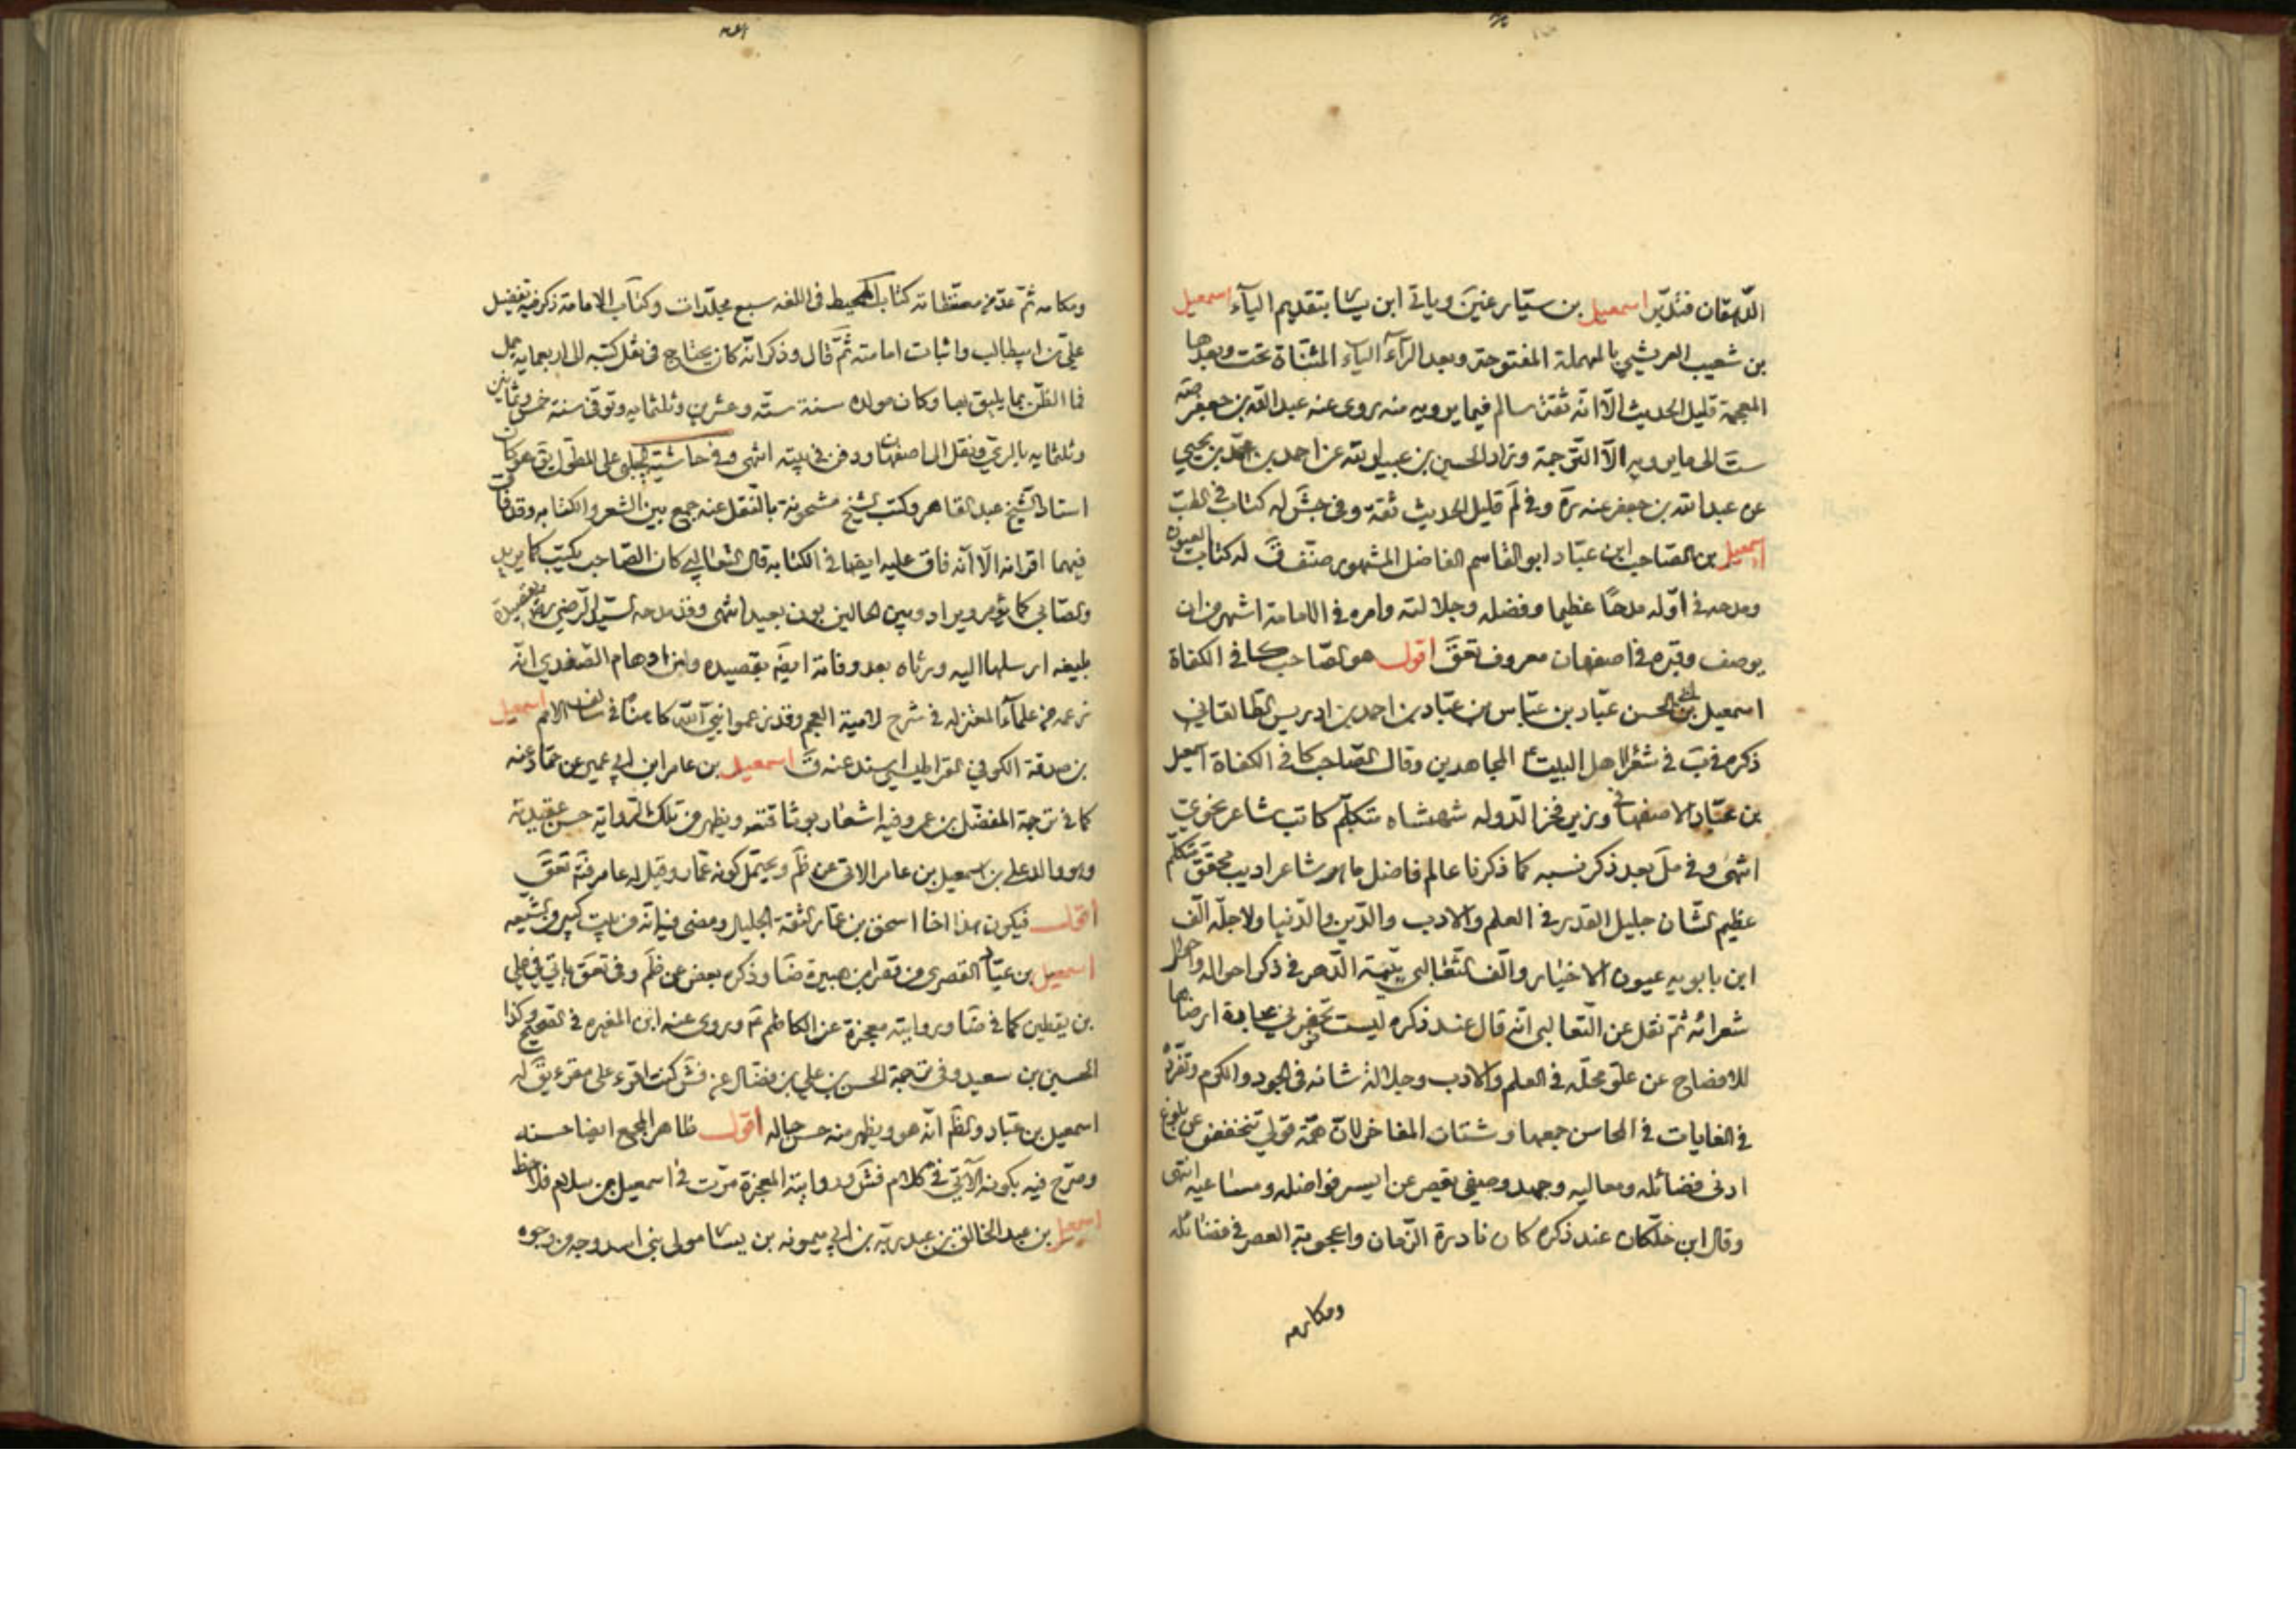 الدهقان فتدبّر اسمعيل بن سيّار عنين وياتى ابن يسا بتقديم الياء اسمعيل
بن شعيب العريشي بالمهملة المفتوحة وبعد الراء الياء المثنّاة تحت وبعدها
المعجمة قليل الحديث الّا انّه ثقة سالم فيما يرويه منه روى عنه عبد الله بن جعفر
ست الى ما يرويه الّا الترجمة وزاد الحسين بن عبيد الله عن احمد بن محمّد بن يحيى
عن عبد الله بن جعفر عنه وفى لم قليل الحديث ثقة وفى جش له كتاب فى الطب
اسمعيل بن الصّاحب ابن عبّاد ابو القاسم الفاضل المشهور صنّف ق له كتاب العيون
ومدحه فى اوّله مدحًا عظيما وفضله وجلالته وامره فى الامامة اشهر من ان
يوصف وقبره فى اصفهان معروف تعق اقول هو الصّاحب كافى الكفاة
اسمعيل بن ابى الحسن عبّاد بن عبّاس بن عبّاد بن احمد بن ادريس الطّالقانى
ذكره فى ب فى شعراء اهل البيت ع المجاهدين وقال الصّاحب كافى الكفاة اسمعيل
بن عبّاد الاصفهانى وزير فخر الدّوله شهنشاه متكلّم كاتب شاعر نحوى
انتهى وفى مل بعد ذكر نسبه كما ذكرنا عالم فاضل ماهر شاعر اديب محقق متكلّم
عظيم الشّان جليل القدر فى العلم والادب والدّين والدّنيا ولاجله الّف
ابن بابويه عيون الاخبار والّف الثّعالبى يتيمة الدّهر فى ذكر احواله واحوال
شعرائه ثمّ نقل عن الثّعالبى انّه قال عند ذكره ليست تحضرنى عبارة ارضاها
للافصاح عن علوّ محلّه فى العلم والادب وجلالة شانه فى الجود والكرم وتفرّده
فى الغايات فى المحاسن جمعها وشتات المفاخر لانّ همّة قولى تنخفض عن بلوغ
ادنى فضائله ومعاليه وجهد وصفى يقصر عن ايسر فواضله ومساعيه انتهى
وقال ابن خلّكان عند ذكره كان نادرة الزّمان واعجوبة العصر فى فضائله
ومكارمه
ومكارمه ثمّ عدّ من مصنّفاته كتاب المحيط فى اللغه سبع مجلّدات وكتاب الامامة ذكر فيه تفضيل
علىّ بن ابيطالب واثبات امامته ثمّ قال وذكر انّه كان يحتاج فى نقل كتبه الى اربعمايه جمل
فما الظّن بما يليق بها وكان مولده سنة ستّه وعشرين وثلثمايه وتوفى سنة خمس وثمانين
وثلثمايه بالرى ونقل الى اصفهان ودفن فى بيته انتهى وفى حاشية الجلبى على المطول ابن عبّاد كان
استاد الشّيخ عبد القاهر وكتب الشّيخ مشحونة بالنّقل عنه جمع بين الشعر والكتابه وقد فاق
فيهما اقرانه الّا انّه فاق عليه ايضا فى الكتابه قال الثعالبى كان الصّاحب يكتب كما يريد
والصّابى كما يؤمر ويراد وبين الحالين بون بعيد انتهى وقد مدحه السّيد الرّضى ره بقصيدة
بليغه ارسلها اليه ورثاه بعد وفاته ايضا بقصيده ومن اوهام الصّفدى انّه
زعمه من علماء المعتزله فى شرح لامية العجم وقد زعموا نبى الله كاهنا فى سالف الامم اسمعيل
بن صدقة الكوفى القراطيسى اسند عنه ق اسمعيل بن عامر ابن ابى عمير عن حمّاد عنه
كما فى ترجمة المفضّل بن عمر وفيه اشعار بوثاقته ويظهر من تلك الرّواية حسن عقيدته
وهو والد على بن اسمعيل بن عامر الاتى عن ظم ويحتمل كونه عمّار وقيل له عامر فتم تعق
اقول فيكون هذا اخا اسحق بن عمّار الثقة الجليل ومضى فيه انّه من بيت كبير من الشّيعه
اسمعيل بن عبّاد القصرى من قصر ابن هبيرة ضا وذكره بعض من ظم وفى تعق ياتى فى على
بن يقطين كما فى ضا وروايته معجزة عن الكاظم ع وروى عنه ابن المغيره فى الصّحيح وكذا
الحسين بن سعيد وفى ترجمة الحسن بن على بن فضال عن فش كنت اقرء على مقرء يق له
اسمعيل بن عبّاد والظّم انّه هو ويظهر منه حسن حاله اقول ظاهر المجمع ايضا حسنه
وصرّح فيه بكونه الآتى فى كلام فش ورواية المعجزة مرّت فى اسمعيل بن سلام فلاحظ
اسمعيل بن عبد الخالق بن عبد ربّه بن ابى ميمونه بن يسا مولى بنى اسد وجه من وجوه